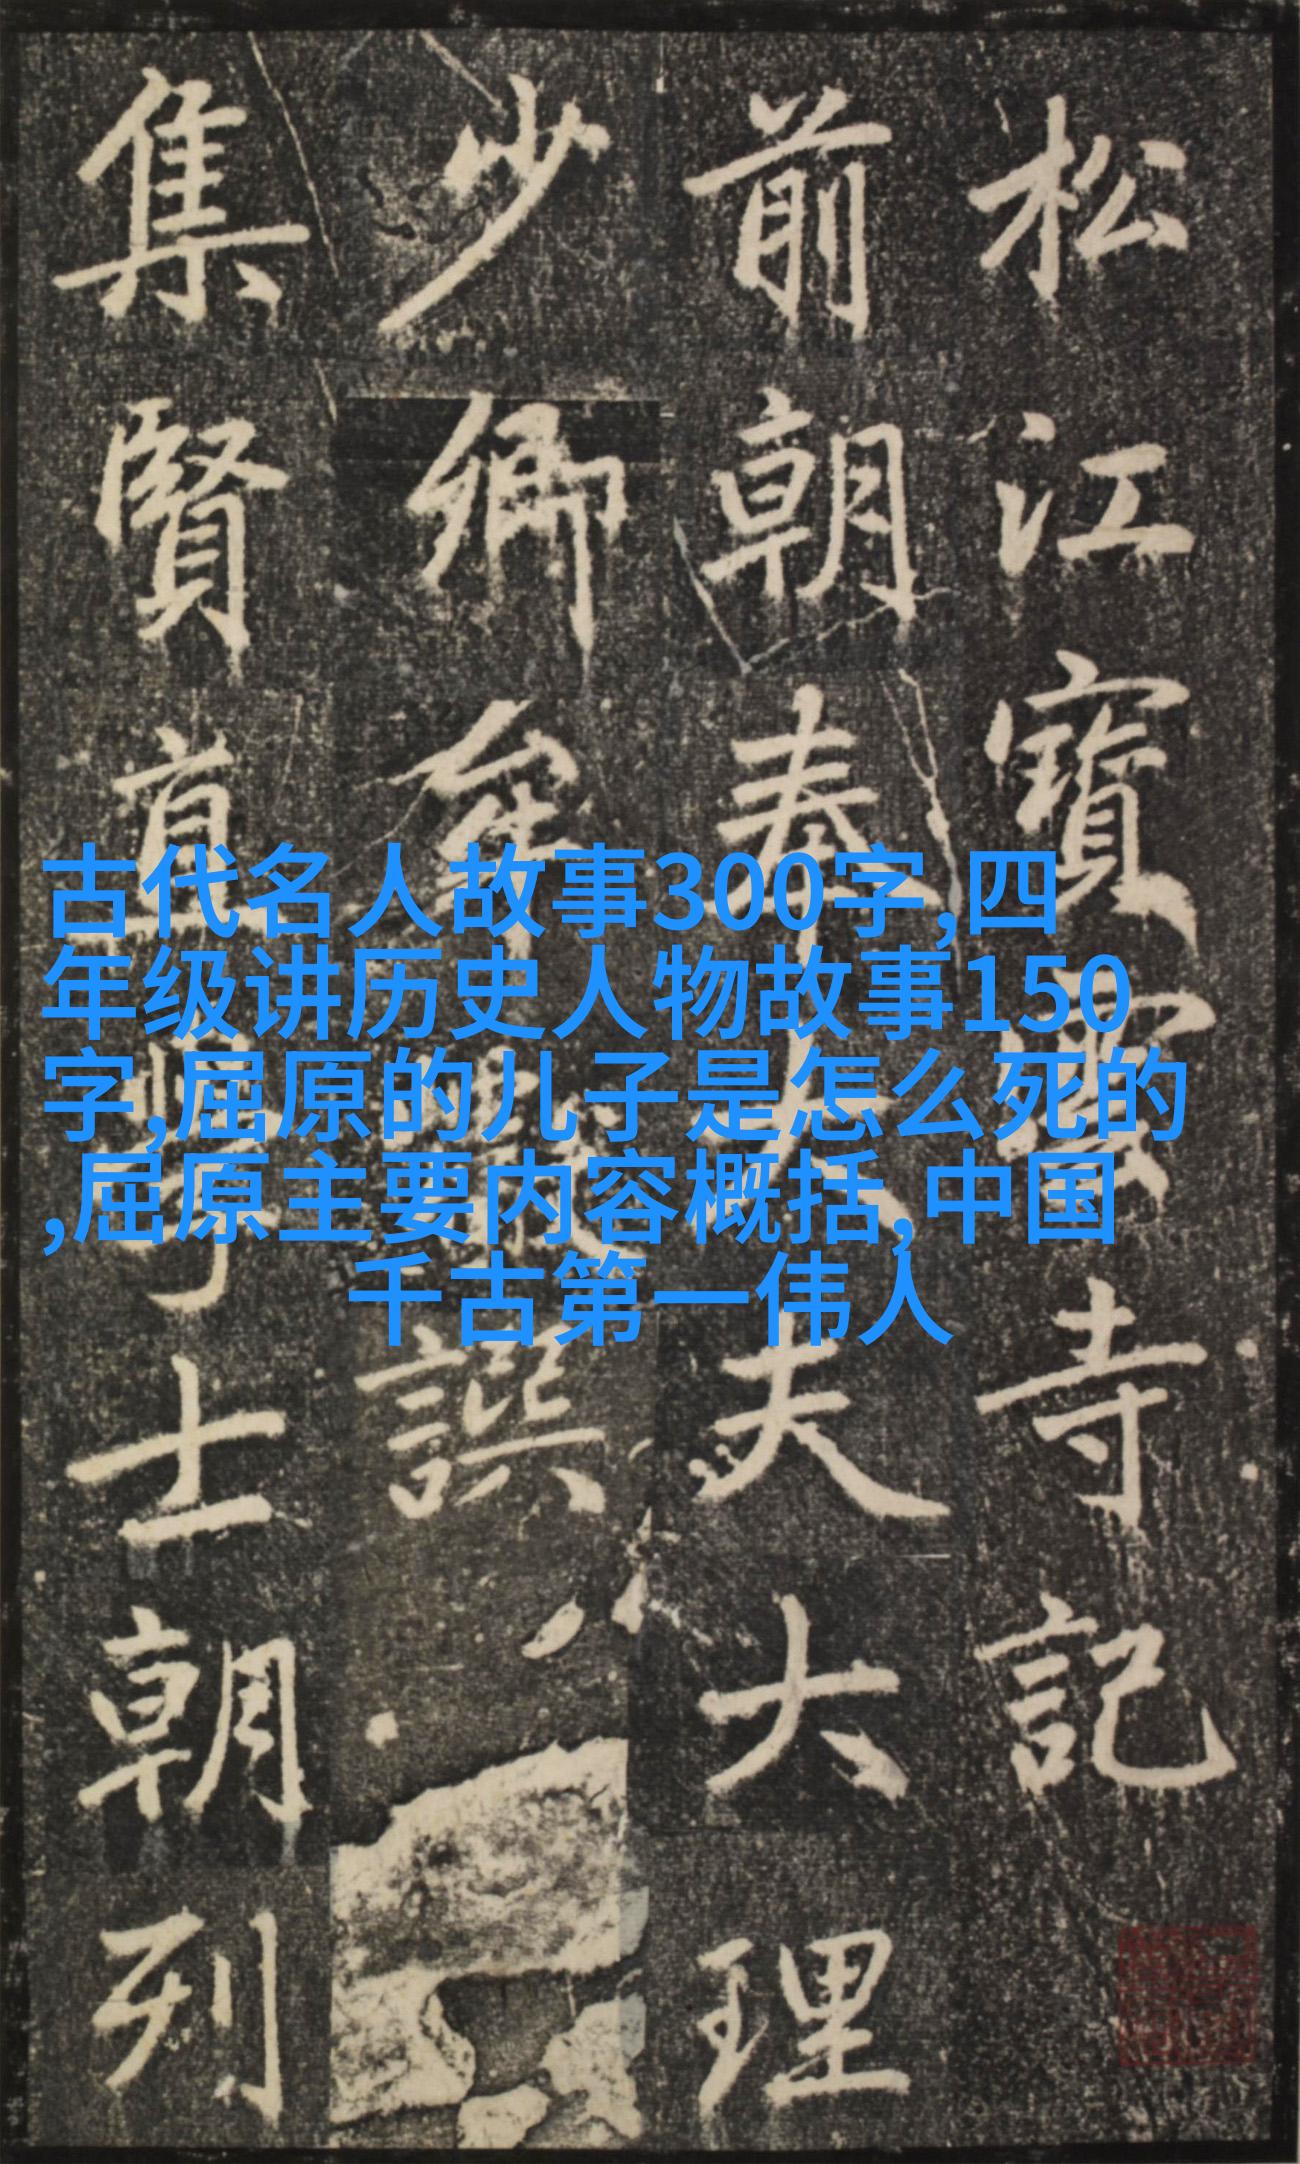 松江寶雲寺記
前朝奉大夫大理
少卿牟巘譔
集賢直學士朝列
古代名人故事300字,四
年级讲历史人物故事150
字,屈原的儿子是怎么死的
,屈原主要内容概括,中国
千古第一伟人